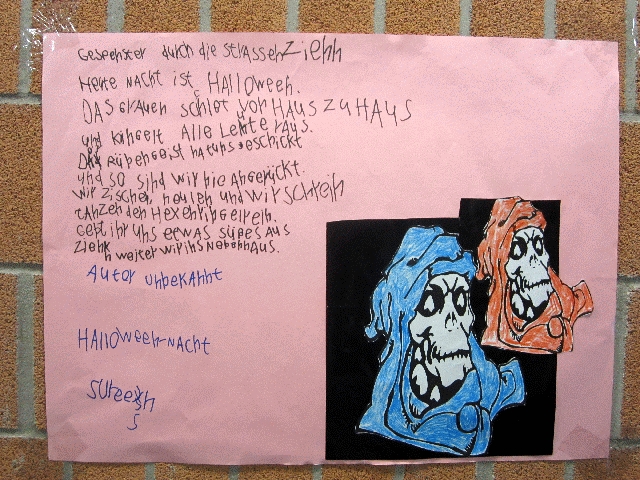 Gespenster durch die strassen Ziehn
Heute Nacht ist Halloween.
DAS GrAuen schlet von HAUS ZU HAUS
und Kingelt Alle Leute raus.
Der Rübengeist hat uns geschickt
und so sind wir hie Abgerückt.
wir zischen, heulen und wir schreih
tAnzen den Hexenringelreih.
Gebt ihr uns etwas süßes Aus
Ziehn weiter wir ins NebenhAus.
Autor unbekannt
HAlloween-NAcht